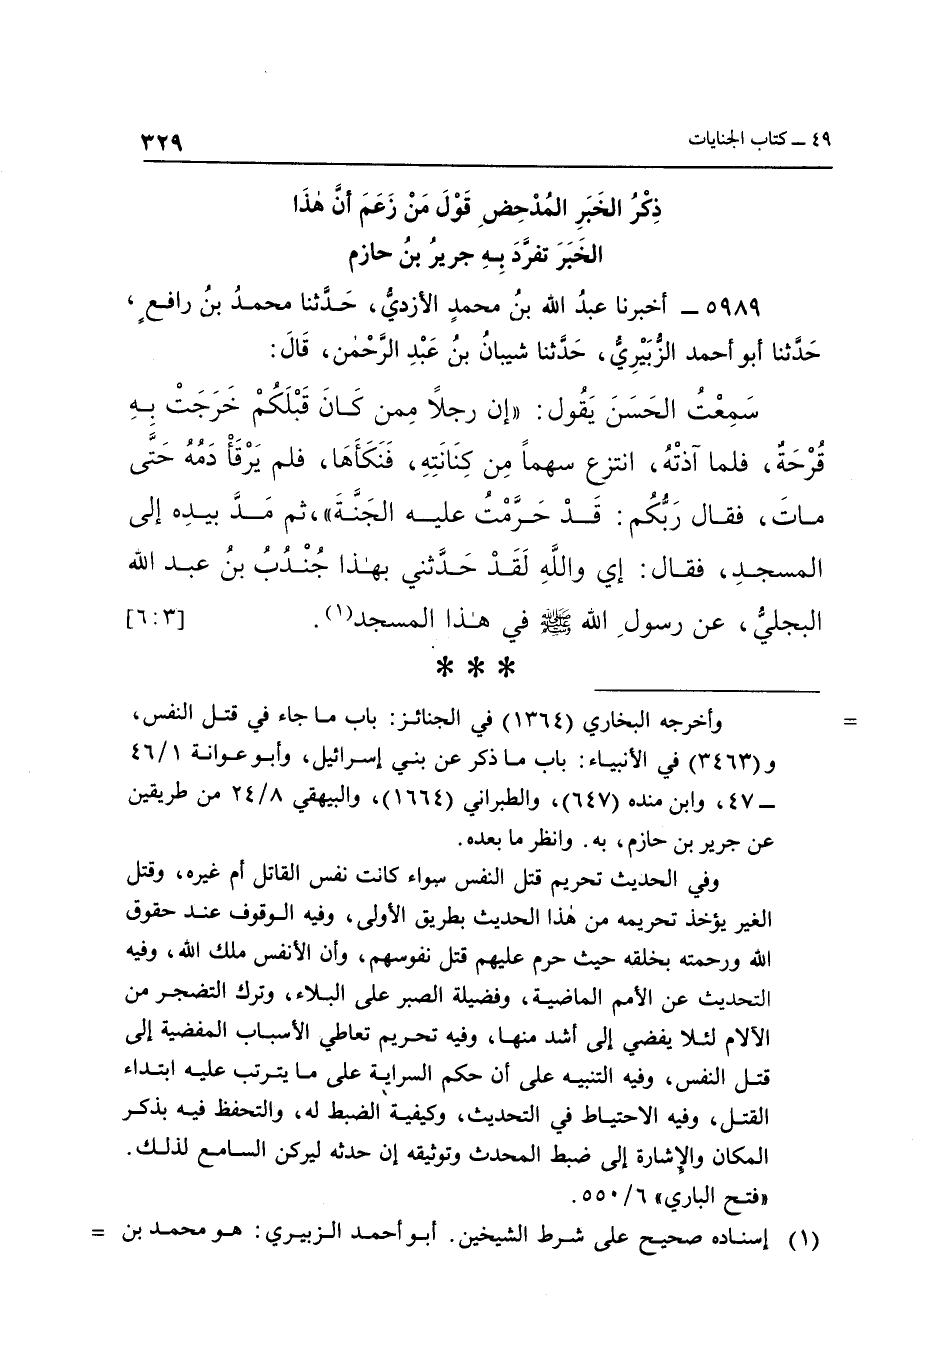 ٤٩ ــ كتاب الجنايات ٣٢٩
ذِكْرُ الخَبَرِ المُدْحِضِ قَوْلَ مَنْ زَعَمَ أَنَّ هٰذَا
الخَبَرَ تفرَّدَ بِهِ جريرُ بنُ حازم
٥٩٨٩ ــ أخبرنا عبدُ الله بنُ محمدٍ الأزديُّ، حَدَّثنا محمدُ بنُ رافعٍ،
حَدَّثنا أبو أحمد الزُّبَيْرِيُّ، حَدَّثنا شيبانُ بنُ عَبْدِ الرَّحْمٰنِ، قَالَ:
سَمِعْتُ الحَسَنَ يَقُول: «إن رجلاً مِمن كَانَ قَبْلَكُمْ خَرَجَتْ بِهِ
قُرْحَةٌ، فلما آذتْهُ، انتزع سهماً مِن كِنَانَتِهِ، فَنَكَأَهَا، فلم يَرْقَأْ دَمُهُ حَتَّى
ماتَ، فقال رَبُّكُم: قَدْ حَرَّمْتُ عليه الجَنَّةَ»، ثم مَدَّ بيدِه إلى
المسجدِ، فقال: إي واللَّهِ لَقَدْ حَدَّثني بهٰذا جُنْدُبُ بنُ عبد الله
البجليُّ، عن رسولِ الله ﷺ في هٰذا المسجد(١). [٦:٣]
* * *
= وأخرجه البخاري (١٣٦٤) في الجنائز: باب ما جاء في قتل النفس،
و(٣٤٦٣) في الأنبياء: باب ما ذكر عن بني إسرائيل، وأبو عوانة ٤٦/١
ــ ٤٧، وابن منده (٦٤٧)، والطبراني (١٦٦٤)، والبيهقي ٢٤/٨ من طريقين
عن جرير بن حازم، به. وانظر ما بعده.
وفي الحديث تحريم قتل النفس سواء كانت نفس القاتل أم غيره، وقتل
الغير يؤخذ تحريمه من هٰذا الحديث بطريق الأولى، وفيه الوقوف عند حقوق
الله ورحمته بخلقه حيث حرم عليهم قتل نفوسهم، وأن الأنفس ملك الله، وفيه
التحديث عن الأمم الماضية، وفضيلة الصبر على البلاء، وترك التضجر من
الآلام لئلا يفضي إلى أشد منها، وفيه تحريم تعاطي الأسباب المفضية إلى
قتل النفس، وفيه التنبيه على أن حكم السراية على ما يترتب عليه ابتداء
القتل، وفيه الاحتياط في التحديث، وكيفية الضبط له، والتحفظ فيه بذكر
المكان والإشارة إلى ضبط المحدث وتوثيقه إن حدثه ليركن السامع لذلك.
«فتح الباري» ٥٥٠/٦.
(١) إسناده صحيح على شرط الشيخين. أبو أحمد الزبيري: هو محمد بن =